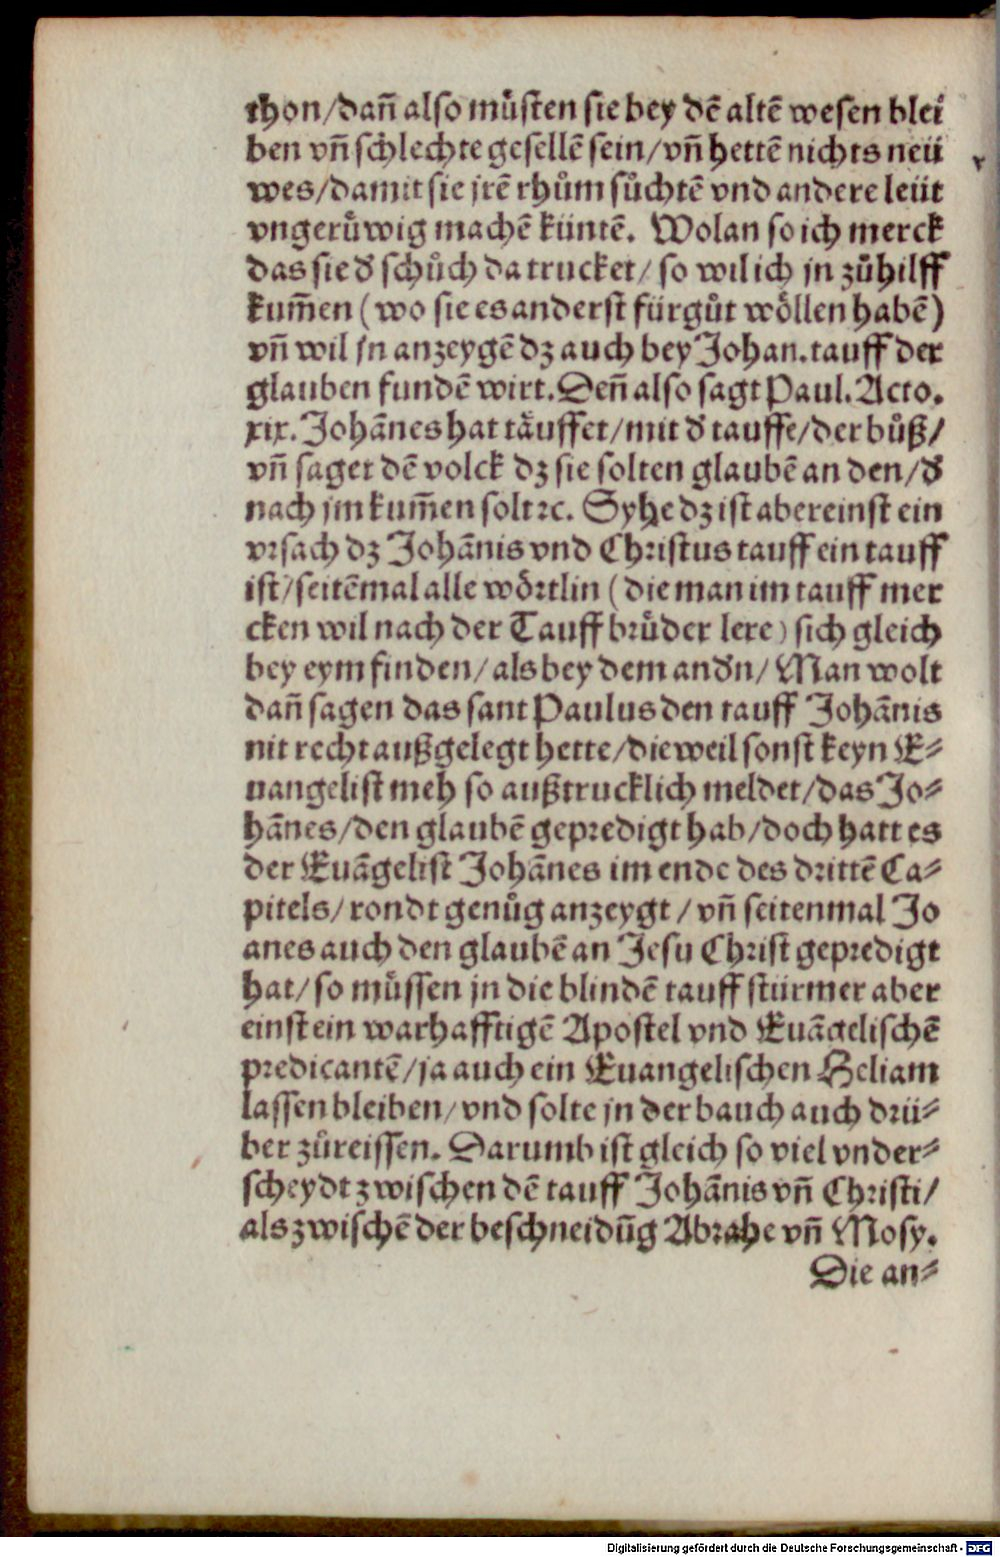 thon/dañ also můsten sie bey dē altē wesen blei
ben vñ schlechte gesellē sein/vñ hettē nichts neü
wes/damit sie jrē rhům sůchtē vnd andere leüt
vngerůwig machē küntē. Wolan so ich merck
das sie d̕ schůch da trucket/ so wil ich jn zůhilff
kum̃en (wo sie es anderst fürgůt wöllen habē)
vñ wil jn anzeygē dz auch bey Johan. tauff der
glauben fundē wirt. Deñ also sagt Paul. Acto.
xix. Johānes hat täuffet/mit d̕ tauffe/der bůß/
vñ saget dē volck dz sie solten glaubē an den/d̕
nach jm kum̃en solt ꝛc. Syhe dz ist abereinst ein
vrsach dz Johānis vnd Christus tauff ein tauff
ist/seitēmal alle wörtlin (die man im tauff mer
cken wil nach der Tauff brůder lere) sich gleich
bey eym finden/als bey dem and̕n/ Man wolt
dañ sagen das sant Paulus den tauff Johānis
nit recht außgelegt hette/dieweil sonst keyn E⸗
uangelist meh so außtrucklich meldet/das Jo⸗
hānes/den glaubē gepredigt hab/doch hatt es
der Euāgelist Johānes im ende des drittē Ca⸗
pitels/rondt genůg anzeygt/vñ seitenmal Jo
anes auch den glaubē an Jesu Christ gepredigt
hat/so můssen jn die blindē tauff stürmer aber
einst ein warhafftigē Apostel vnd Euāgelischē
predicantē/ja auch ein Euangelischen Heliam
lassen bleiben/vnd solte jn der bauch auch drü⸗
ber zůreissen. Darumb ist gleich so viel vnder⸗
scheydt zwischen dē tauff Johānis vñ Christi/
als zwischē der beschneidūg Abrahe vñ Mosy.
Die an⸗
Digitalisierung gefördert durch die Deutsche Forschungsgemeinschaft - DFG